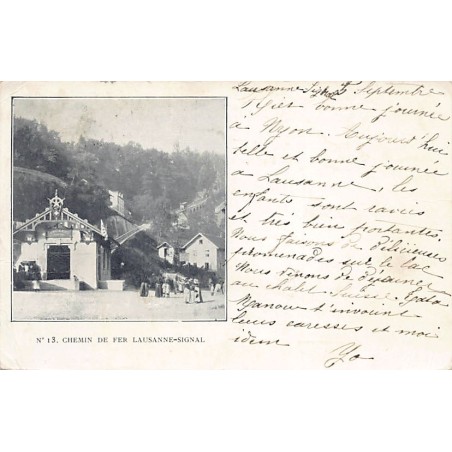 N° 13. CHEMIN DE FER LAUSANNE-SIGNAL
Lausanne Signal Septembre
Hier bonne journée
à Nyon. Aujourd'hui
belle et bonne journée
à Lausanne, les
enfants sont ravies
et très bien portantes.
Nous faisons de délicieuses
promenades sur le lac
Nous venons de déjeuner
au chalet Suisse.
Manon t'envoient
leurs caresses et moi
idem
Yo